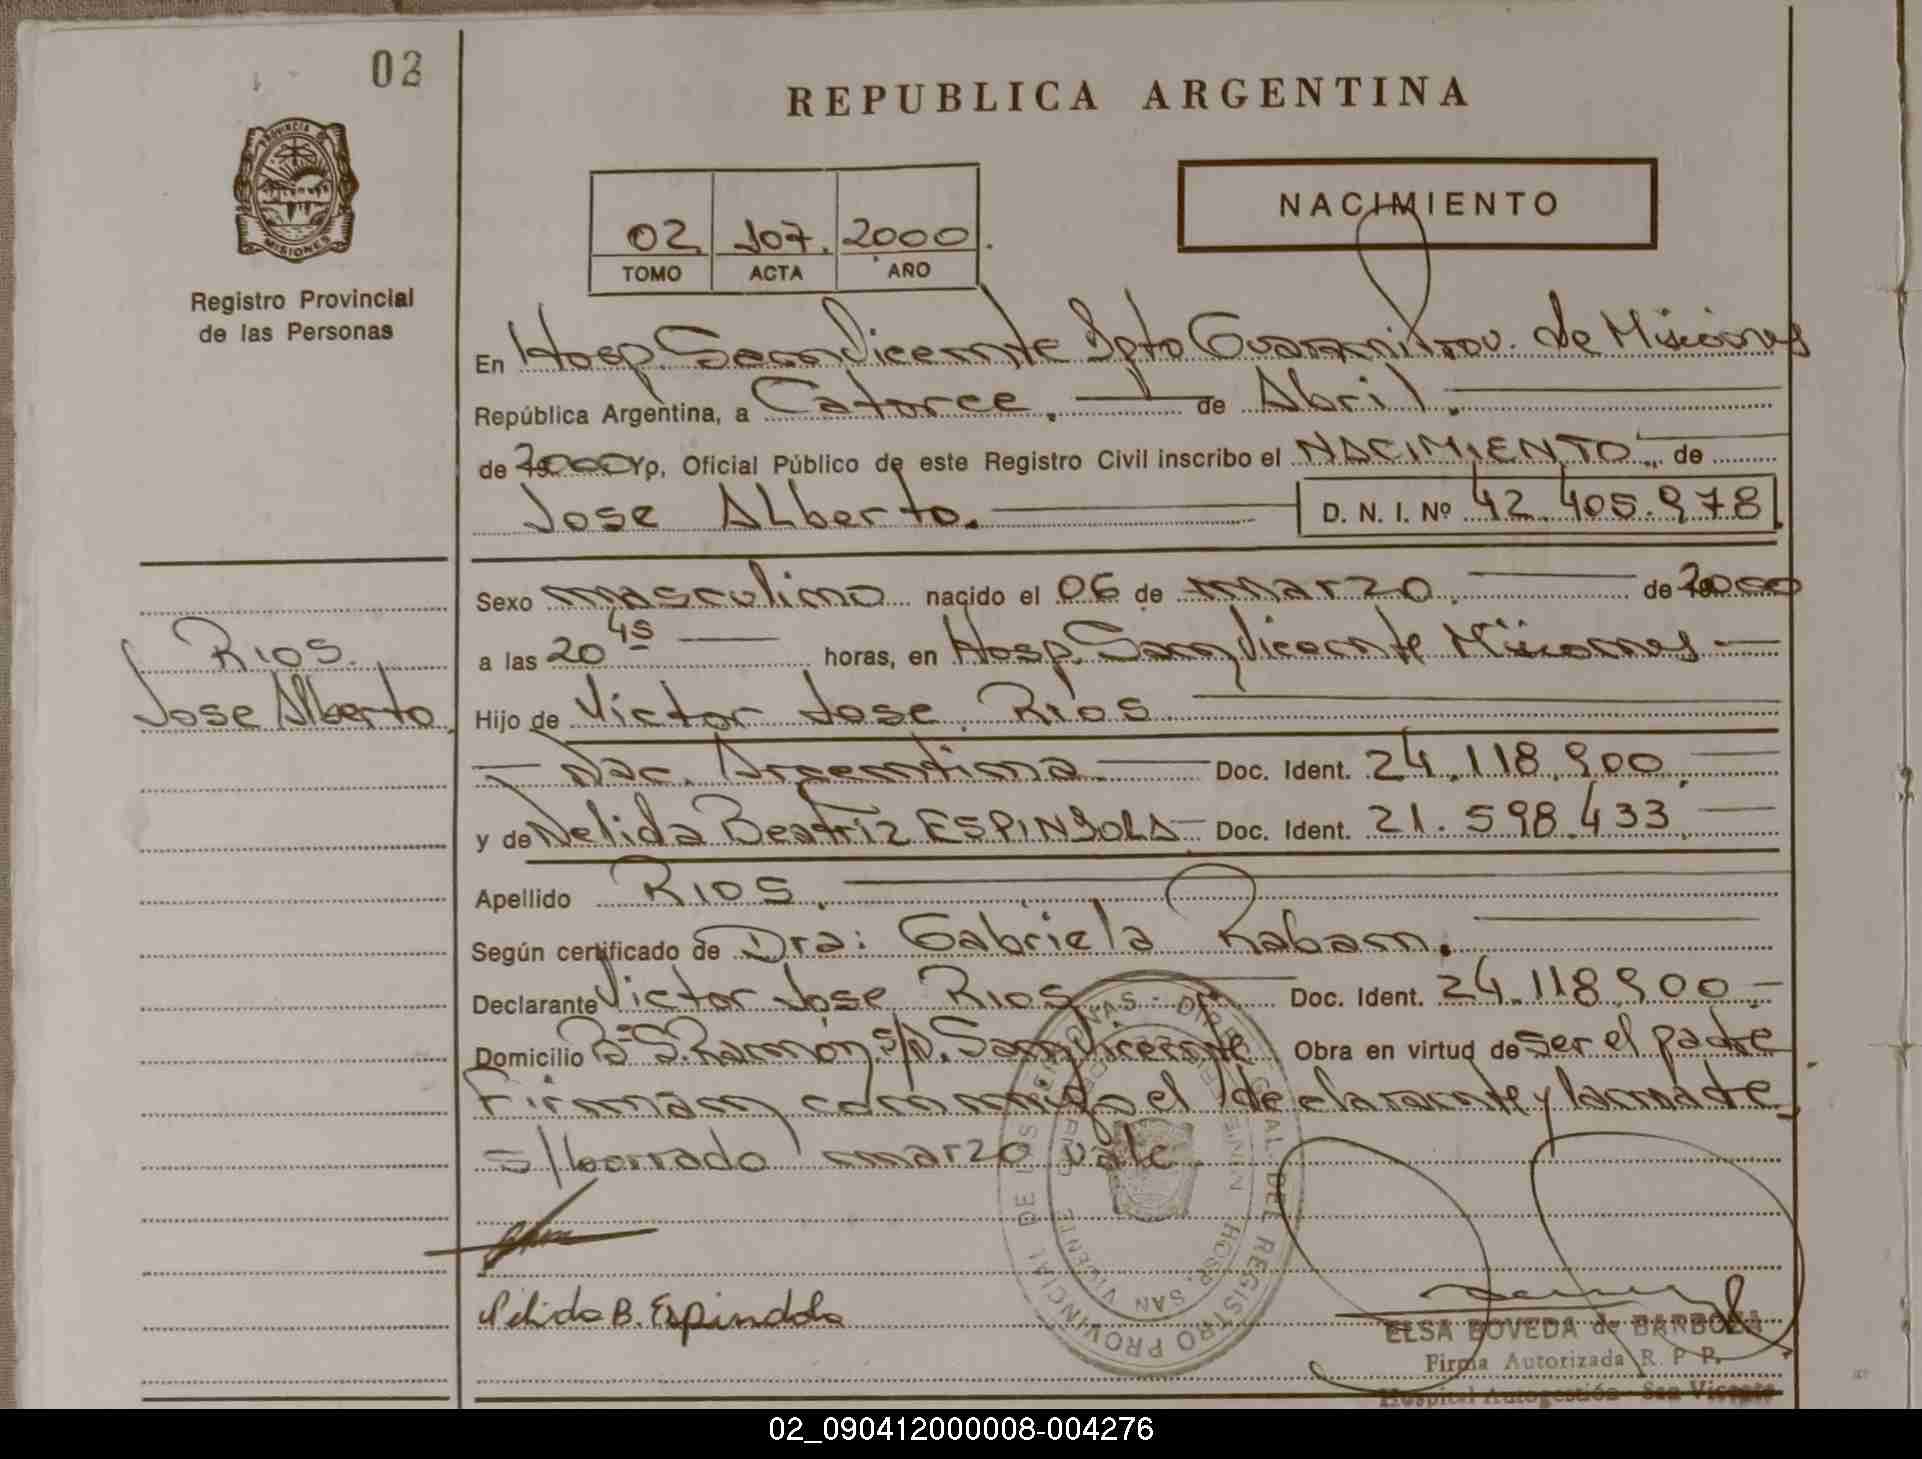 02
REPUBLICA ARGENTINA
PROVINCIA DE
MISIONES
Registro Provincial
de las Personas
02. 107. 2000.
TOMO ACTA AÑO
NACIMIENTO
En Hosp. San Vicente Dpto Guarani Prov. de Misiones
República Argentina, a Catorce. de Abril.
de 2000 Yo, Oficial Público de este Registro Civil inscribo el NACIMIENTO. de
Jose Alberto. D. N. I. Nº 42.405.978
Sexo masculino nacido el 06 de marzo. de 2000
a las 20 45 horas, en Hosp. San Vicente Misiones
Rios.
Jose Alberto.
Hijo de Victor Jose Rios
Nac. Argentina Doc. Ident. 24.118.900.
y de Nelida Beatriz ESPINDOLA Doc. Ident. 21.598.433.
Apellido RIOS.
Según certificado de Dra: Gabriela Raban.
Declarante Victor Jose Rios Doc. Ident. 24.118.900
Domicilio Bº S. Ramón s/N. San Vicente Obra en virtud de ser el padre
Firman conmigo el declarante y la madre
s/borrado marzo vale
Nelida B. Espindola
REGISTRO PROVINCIAL DE LAS PERSONAS - DIREC. GRAL. DEL
HOSP. SAN VICENTE
ELSA BOVEDA de BARBOZA
Firma Autorizada R. P. P.
Hospital Autogestión San Vicente
02_090412000008-004276